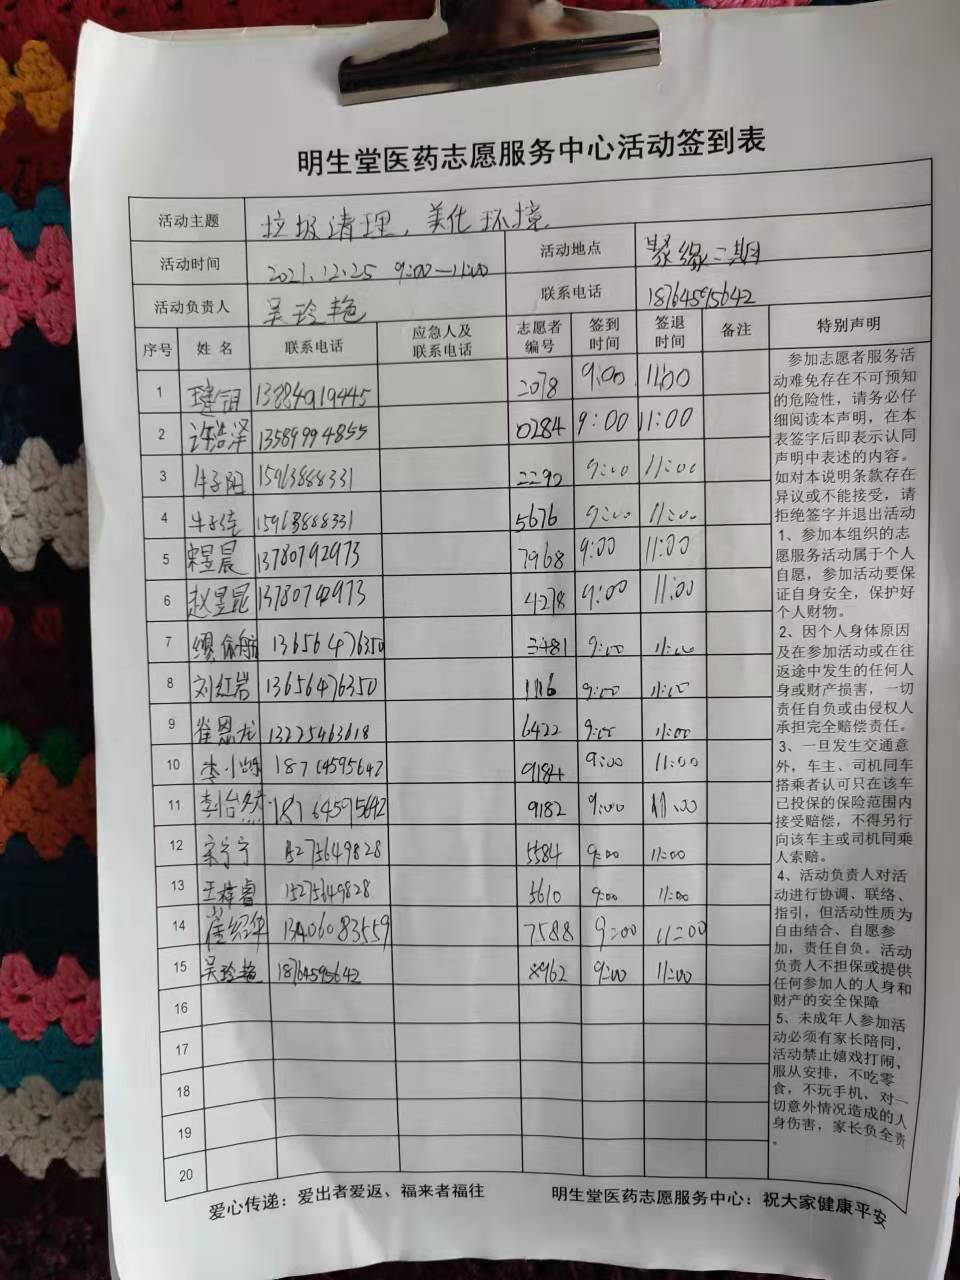 明生堂医药志愿服务中心活动签到表
活动主题 垃圾清理，美化环境
活动时间 2021.12.25 9:00—11:00 活动地点 聚缘二期
活动负责人 吴玲艳 联系电话 18764595642
序号 姓名 联系电话 应急人及联系电话 志愿者编号 签到时间 签退时间 备注 特别声明
1 13884919445 2078 9:00 11:00
2 许浩泽 13589994855 0284 9:00 11:00
3 牛子阳 15963888331 2290 9:00 11:00
4 牛子佳 15963888331 5676 9:00 11:00
5 昱晨 13780792973 7968 9:00 11:00
6 赵昱昆 13780792973 4278 9:00 11:00
7 13656476350 3481 9:00 11:00
8 刘红岩 13656476350 9:00 11:00
9 崔恩龙 13225463618 6422 9:00 11:00
10 李 18764595642 9184 9:00 11:00
11 怡然 18764595642 9182 9:00 11:00
12 宋宁宁 15275649828 5584 9:00 11:00
13 王梓睿 15275649828 5610 9:00 11:00
14 13406083559 7588 9:00 11:00
15 吴玲艳 18764595642 8962 9:00 11:00
16
17
18
19
20
参加志愿者服务活
动难免存在不可预知
的危险性，请务必仔
细阅读本声明，在本
表签字后即表示认同
声明中表述的内容。
如对本说明条款存在
异议或不能接受，请
拒绝签字并退出活动
1、参加本组织的志
愿服务活动属于个人
自愿，参加活动要保
证自身安全，保护好
个人财物。
2、因个人身体原因
及在参加活动或在往
返途中发生的任何人
身或财产损害，一切
责任自负或由侵权人
承担完全赔偿责任。
3、一旦发生交通意
外，车主、司机同车
搭乘者认可只在该车
已投保的保险范围内
接受赔偿，不得另行
向该车主或司机同乘
人索赔。
4、活动负责人对活
动进行协调、联络、
指引，但活动性质为
自由结合、自愿参
加，责任自负。活动
负责人不担保或提供
任何参加人的人身和
财产的安全保障
5、未成年人参加活
动必须有家长陪同，
活动禁止嬉戏打闹，
服从安排，不吃零
食，不玩手机，对一
切意外情况造成的人
身伤害，家长负全责
。
爱心传递：爱出者爱返、福来者福往 明生堂医药志愿服务中心：祝大家健康平安